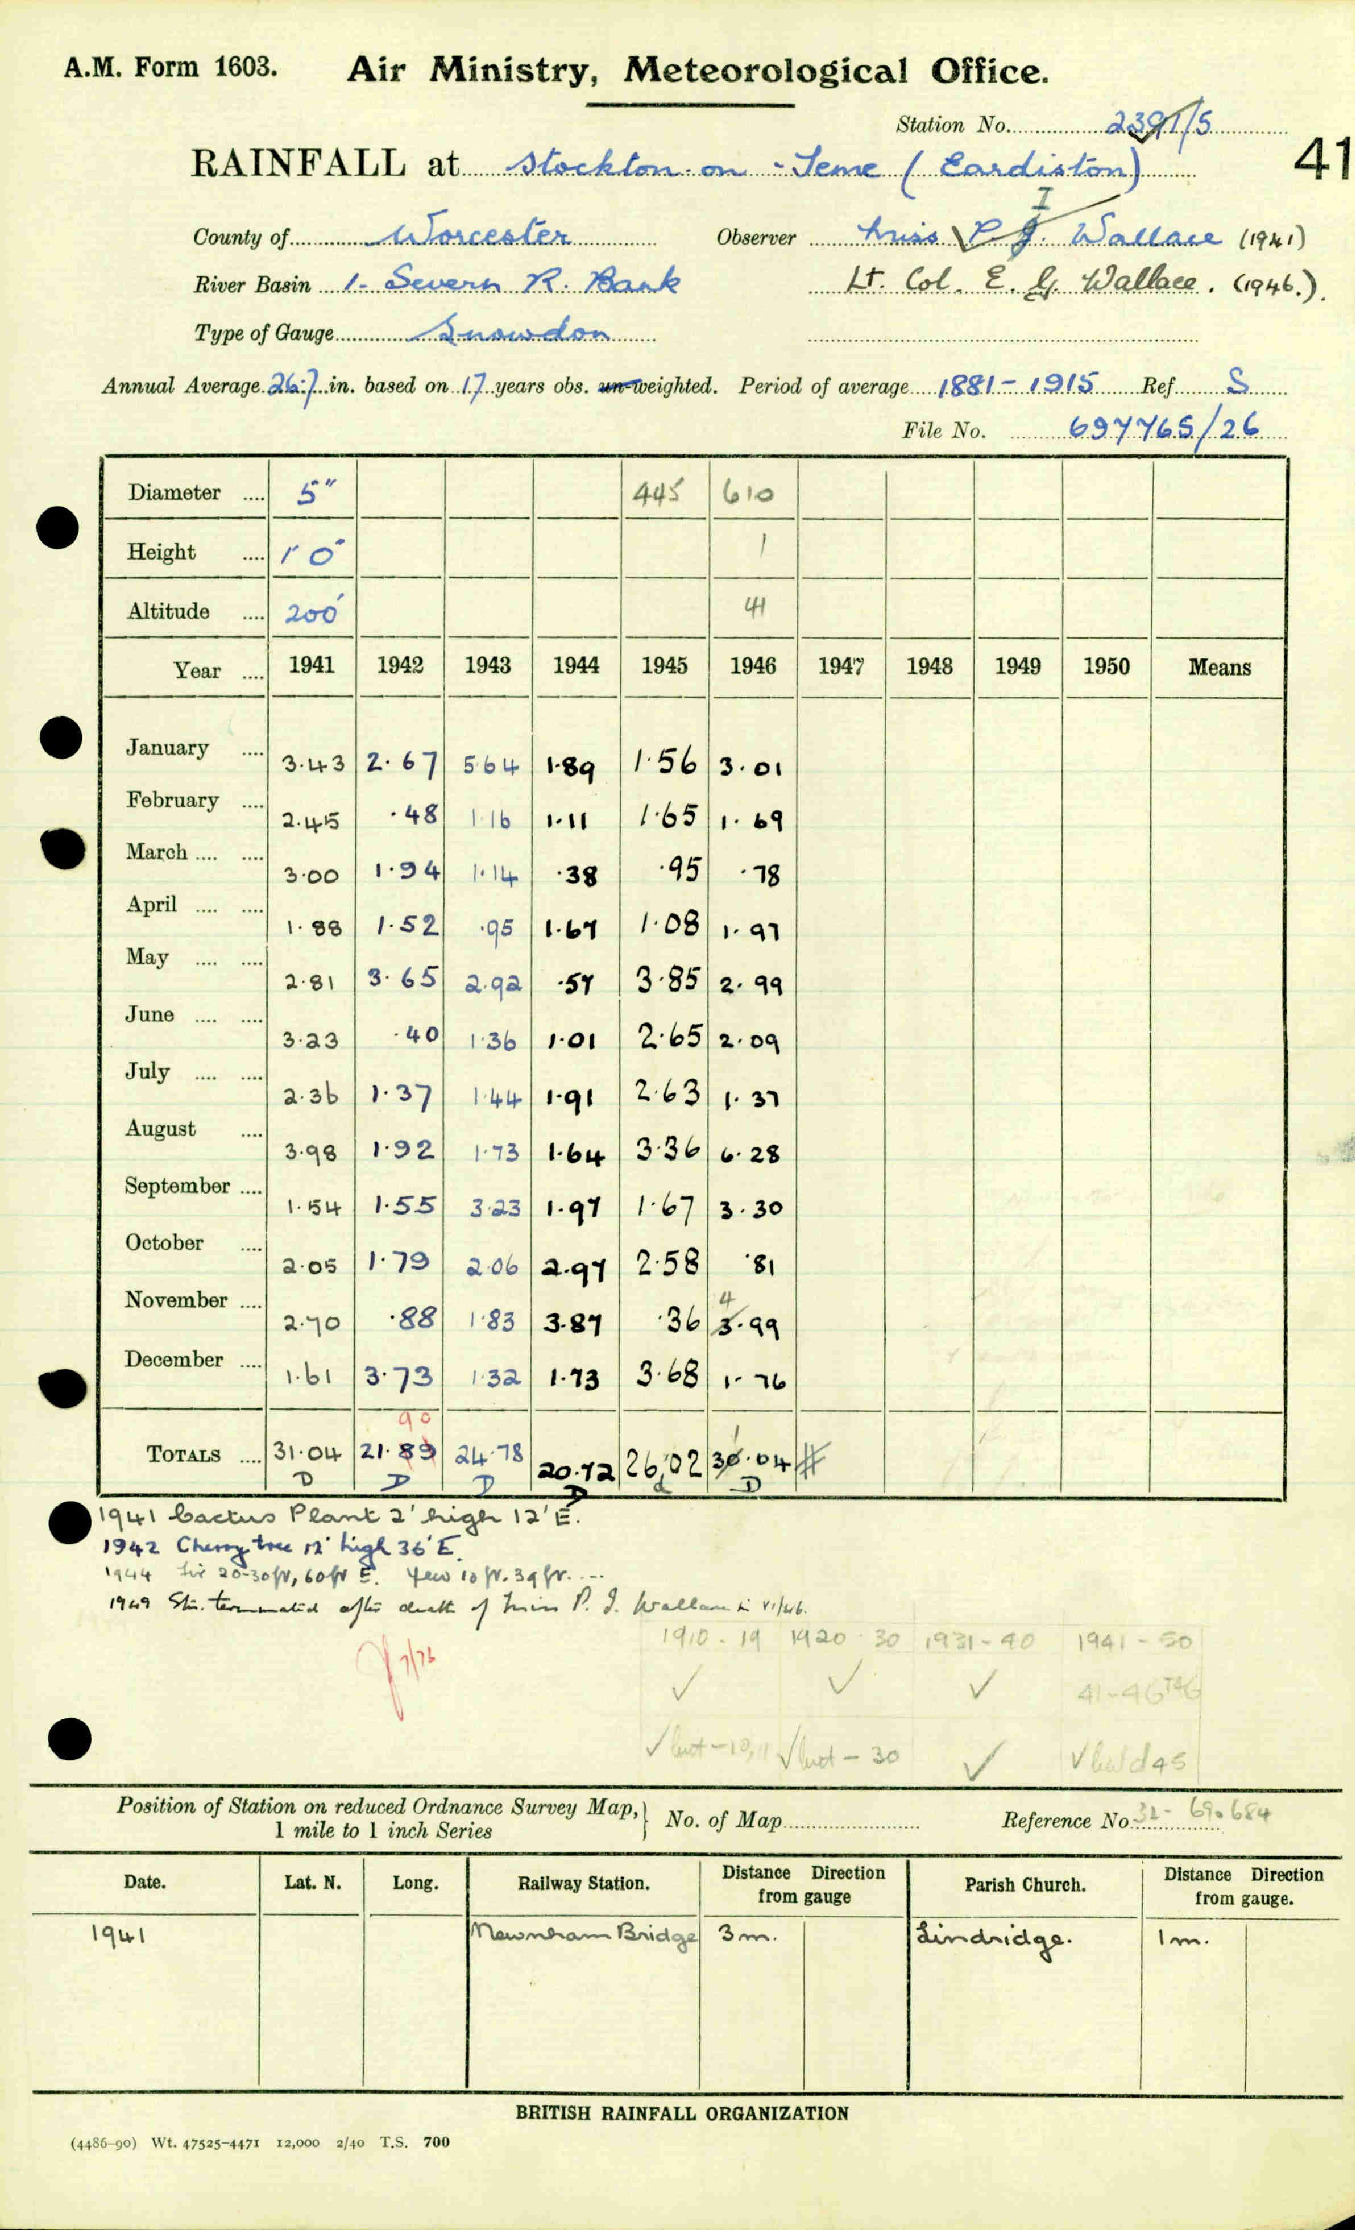 A.M. Form 1603. Air Ministry, Meteorological Office.
Station No. 2391/5
41
RAINFALL at Stockton-on-Teme (Eardiston)
County of Worcester Observer Miss P. I. Wallace (1941)
River Basin 1- Severn R. Bank Lt. Col. E. G. Wallace. (1946.).
Type of Gauge Snowdon
Annual Average 26.7 in. based on 17 years obs. un-weighted. Period of average 1881-1915 Ref S
File No. 697765/26
Diameter .... 5" 445 610
Height .... 1' 0" 1
Altitude .... 200' 41
Year .... 1941 1942 1943 1944 1945 1946 1947 1948 1949 1950 Means
January .... 3.43 2.67 5.64 1.89 1.56 3.01
February .... 2.45 .48 1.16 1.11 1.65 1.69
March .... .... 3.00 1.94 1.14 .38 .95 .78
April .... .... 1.88 1.52 .95 1.67 1.08 1.97
May .... .... 2.81 3.65 2.92 .57 3.85 2.99
June .... .... 3.23 .40 1.36 1.01 2.65 2.09
July .... .... 2.36 1.37 1.44 1.91 2.63 1.37
August .... 3.98 1.92 1.73 1.64 3.36 6.28
September .... 1.54 1.55 3.23 1.97 1.67 3.30
October .... 2.05 1.79 2.06 2.97 2.58 .81
4
November .... 2.70 .88 1.83 3.87 .36 3.99
December .... 1.61 3.73 1.32 1.73 3.68 1.76
90 1
TOTALS .... 31.04 21.89 24.78 20.72 26.02 30.04 #
D D D D d D
1941 Cactus Plant 2' high 12' E.
1942 Cherry tree 12' high 36' E.
1944 Fir 20-30 ft, 60 ft E. Yew 10 ft. 39 ft. ...
1949 Stn. terminated after death of Miss P. I. Wallace in VI/46.
7/76
1910-19 1920-30 1931-40 1941-50
✓ ✓ ✓ 41-46
✓ but - 10, 11 ✓ but - 30 ✓ ✓ but d 45
Position of Station on reduced Ordnance Survey Map, } No. of Map Reference No. 32- 690684
1 mile to 1 inch Series
Date. Lat. N. Long. Railway Station. Distance Direction from gauge Parish Church. Distance Direction from gauge.
1941 Newnham Bridge 3 m. Lindridge. 1 m.
BRITISH RAINFALL ORGANIZATION
(4486-90) Wt. 47525-4471 12,000 2/40 T.S. 700